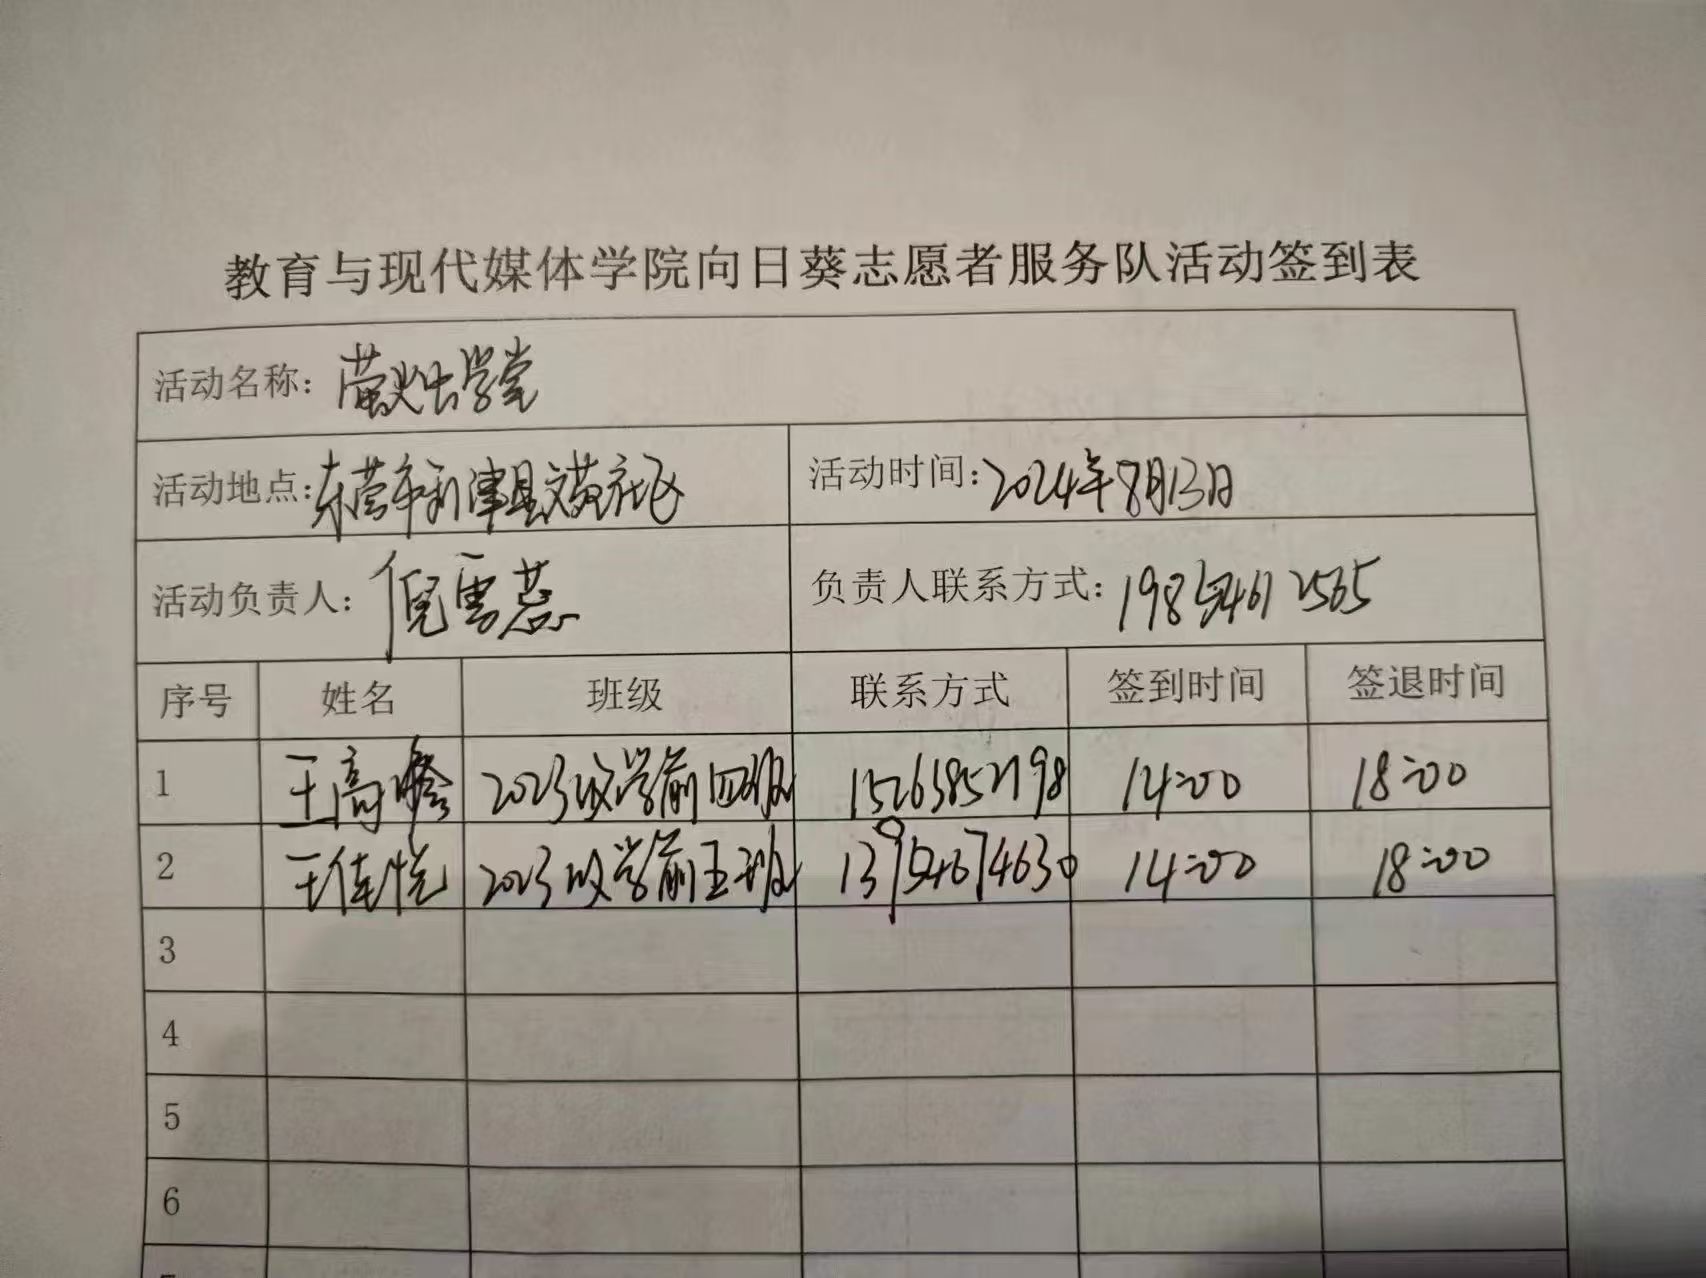 教育与现代媒体学院向日葵志愿者服务队活动签到表
活动名称：萤火虫学堂
活动地点：东营市利津县文苑社区 活动时间：2024年8月13日
活动负责人：倪雪蕊 负责人联系方式：19854612565
序号 姓名 班级 联系方式 签到时间 签退时间
1 王高 2023级学前四班 15263852198 14:00 18:00
2 王佳悦 2023级学前五班 13954674630 14:00 18:00
3
4
5
6